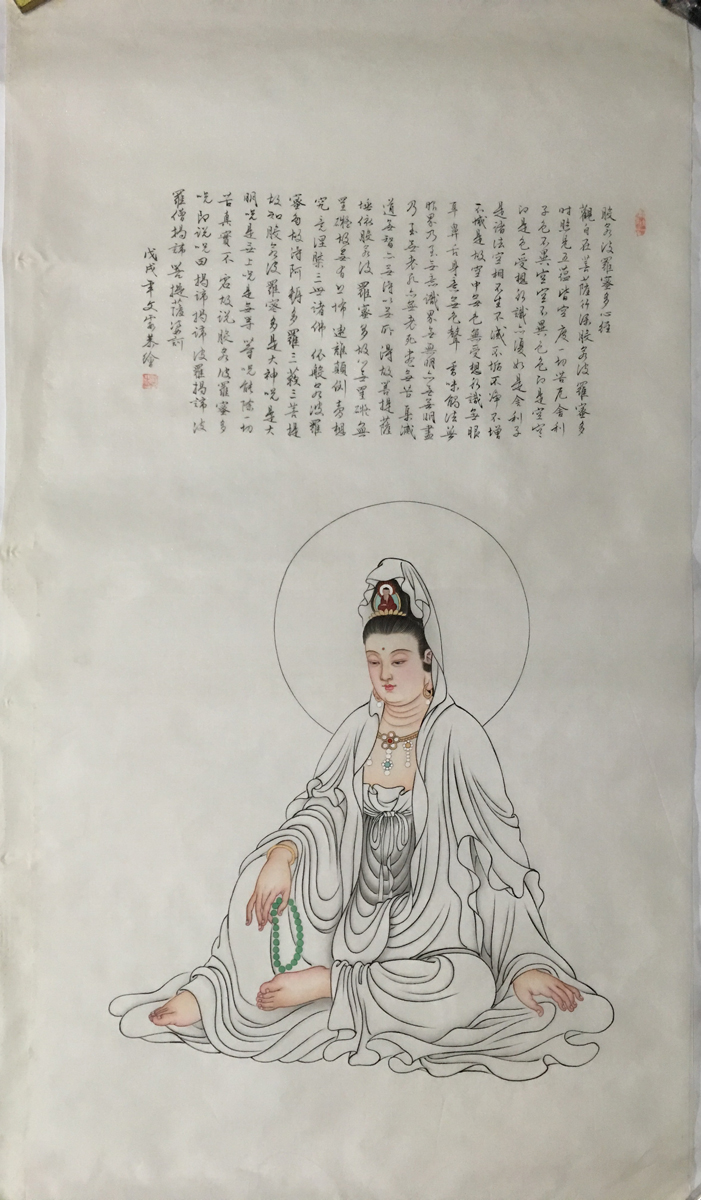 般若波羅蜜多心經
觀自在菩薩行深般若波羅蜜多
時照見五蘊皆空度一切苦厄舍利
子色不異空空不異色色即是空空
即是色受想行識亦復如是舍利子
是諸法空相不生不滅不垢不淨不增
不減是故空中無色無受想行識無眼
耳鼻舌身意無色聲香味觸法無
眼界乃至無意識界無無明亦無無明盡
乃至無老死亦無老死盡無苦集滅
道無智亦無得以無所得故菩提薩
埵依般若波羅蜜多故心無罣礙無
罣礙故無有恐怖遠離顛倒夢想
究竟涅槃三世諸佛依般若波羅
蜜多故得阿耨多羅三藐三菩提
故知般若波羅蜜多是大神咒是大
明咒是無上咒是無等等咒能除一切
苦真實不虛故說般若波羅蜜多
咒即說咒曰揭諦揭諦波羅揭諦波
羅僧揭諦菩提薩婆訶
戊戌年文恭繪